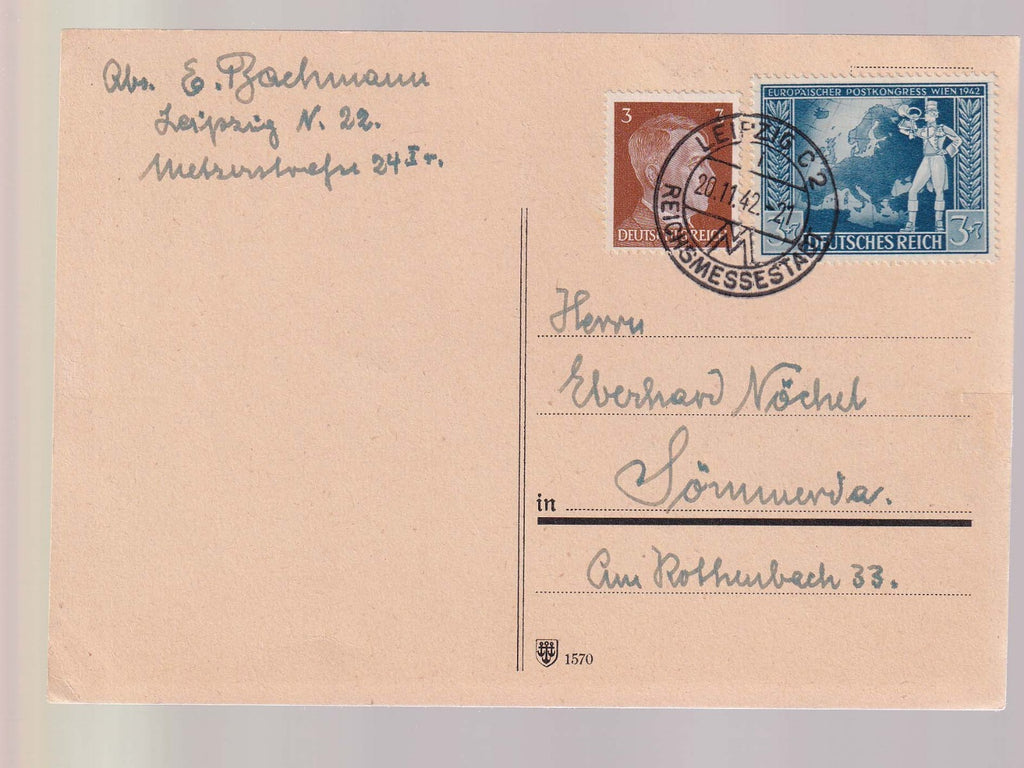 Abs. E. Bachmann
Leipzig N. 22.
Metzerstraße 24 I r.
3 3
DEUTSCHES REICH
EUROPÄISCHER POSTKONGRESS WIEN 1942
3+7 DEUTSCHES REICH 3+7
LEIPZIG C 2
20.11.42.-21
REICHSMESSESTADT
Herrn
Eberhard Nöchel
in Sömmerda.
Am Rothenbach 33.
1570